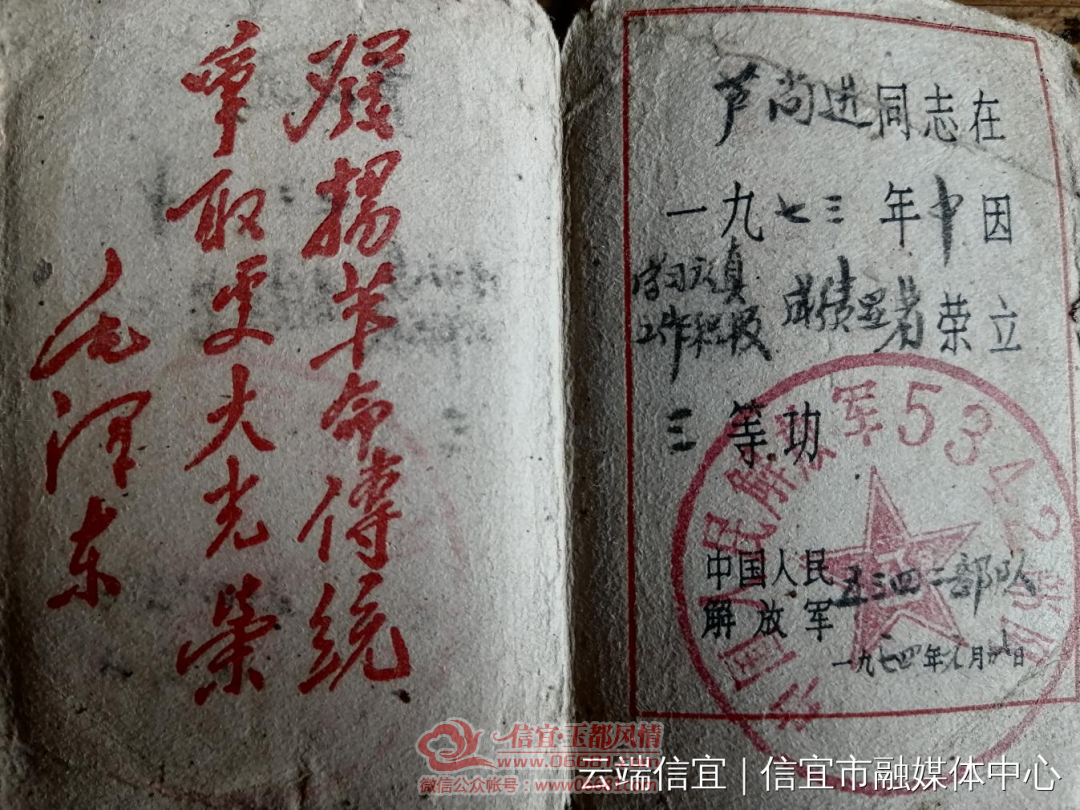 發揚革命傳統
爭取更大光榮
毛澤东
芦尚进同志在
一九七三年中因
学习认真
工作积极 成绩显著荣立
三等功
中国人民解放军5342部队
中国人民
解放军 五三四二部队
一九七四年元月 日
信宜·玉都风情
www.06681.com
微信公众帐号：www06681com
云端信宜 | 信宜市融媒体中心